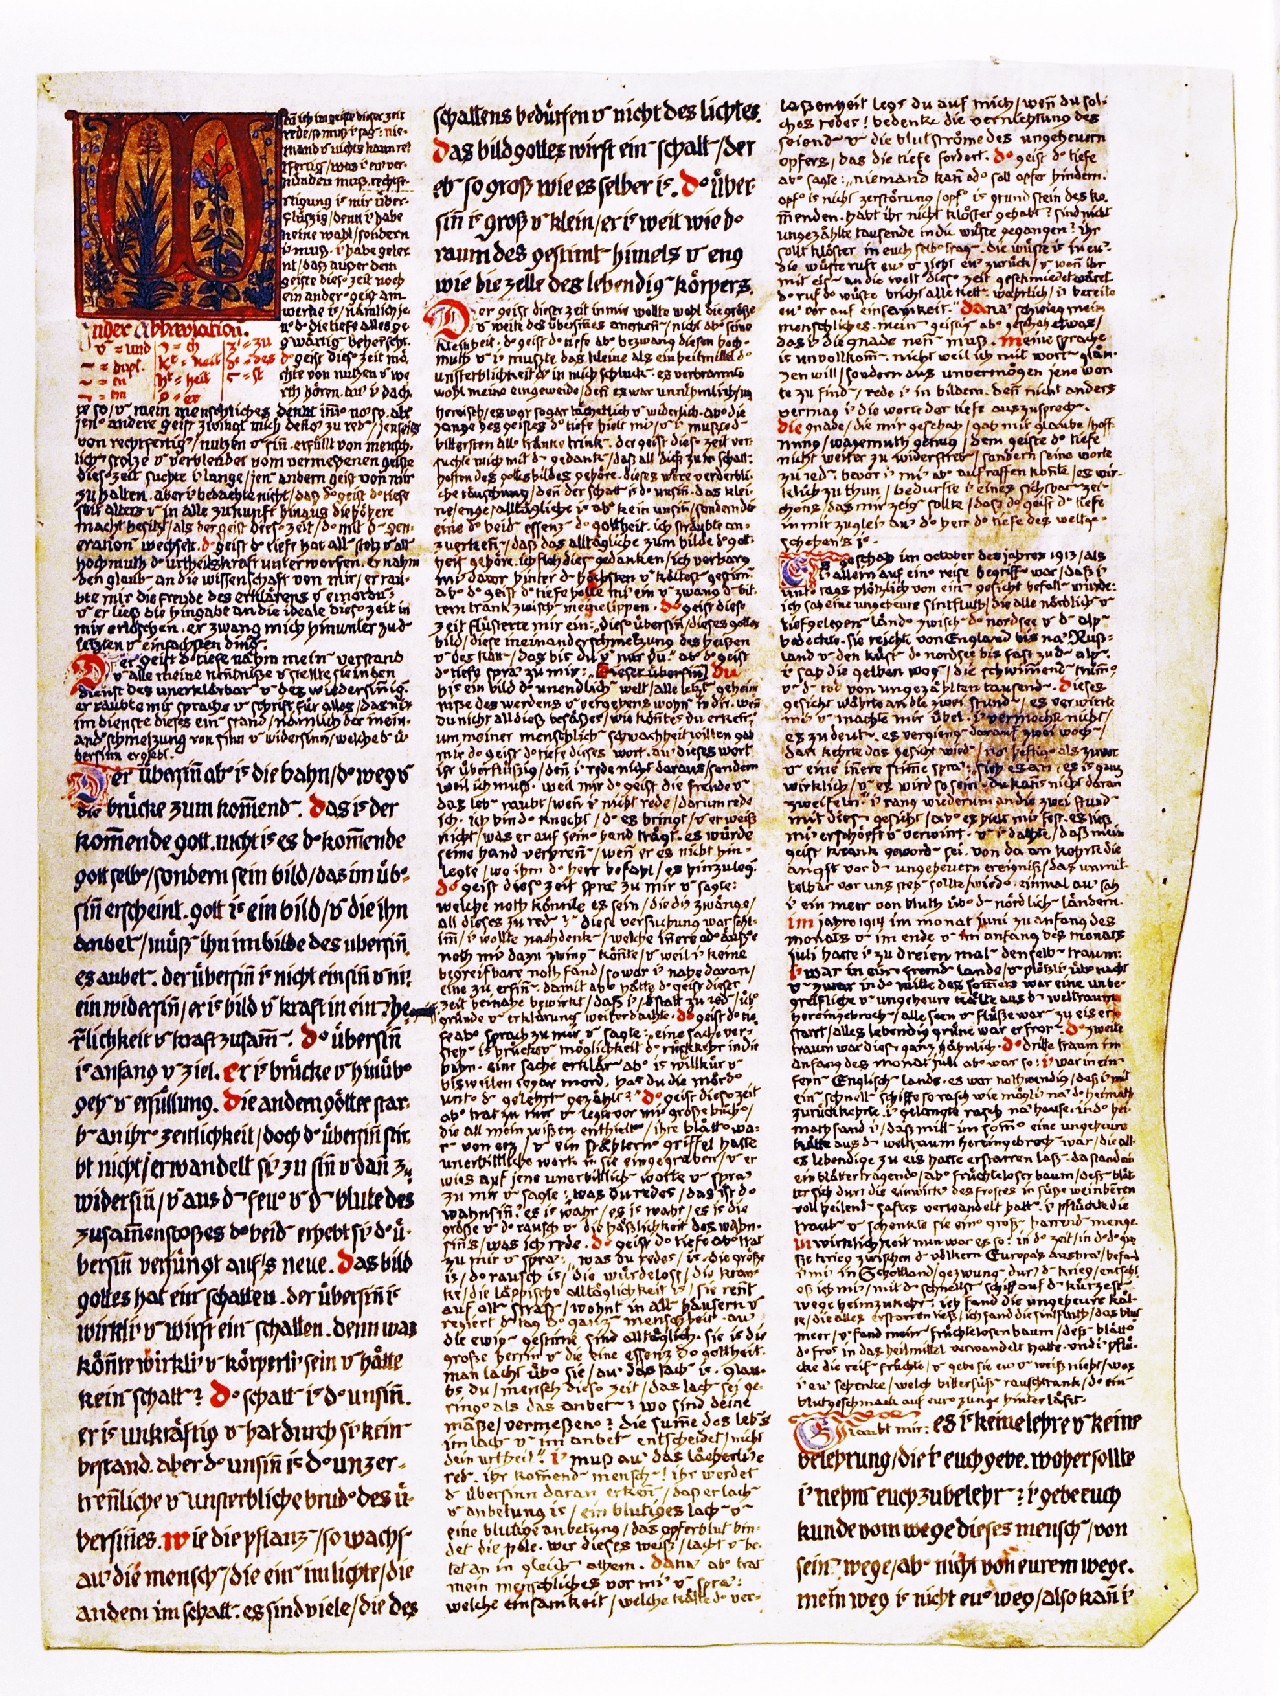 W
en ich im geiste dieser zeit
rede/so muß i sag: nie-
mand v nichts kann rec
tfertig/was i eu ver-
künden muß. rechtfer-
tigung i mir über-
flüßig/denn i habe
keine wahl/sondern
i muß. i habe geler
nt/daß außer dem
geiste dies° zeit noch
ein ander° geist am
werke i/nämlich je
n°/d° die tiefe alles ge-
gwärtig beherscht.
d° geist dies° zeit mö
chte von nutzen v we
rth hören. au i dach
v = und
te so/v mein menschliches denkt im° no so. ab°
jen° andere geist zwingt mich denno zu red/jenseits
von rechtfertig/nutzen v sin. erfüllt von mensch-
lich stolze v verblendet vom vermessenen geiste
dies° zeit suchte i lange/jen andern geist von mir
zu halten. aber i bedachte nicht/daß d° geist d° tiefe
seit alters v in alle zukunft hinaus die höhere
macht besitzt/als der geist dies° zeit/d° mit d gen-
eration wechselt. d° geist d° tiefe hat all stolz v all
hochmuth d° urtheilskraft unterworfen. er nahm
den glaub an die wissenschaft von mir/er rau-
bte mir die freude des erklärens v einordn
v er ließ die hingabe an die ideale dies° zeit in
mir erlöschen. er zwang mich hinunter zu d
letzten v einfachsten ding.
Der geist d° tiefe nahm mein verstand
v alle meine kentniße v stellte sie in den
dienst des unerklärbar v des widersinig.
er raubte mir sprache v schrift für alles/das ni
im dienste dieses ein stand/nämlich der inein-
andschmelzung von sin v widersin/welche d ü-
bersin ergibt.
Der übersin ab° i die bahn/d° weg v
die brücke zum kom̄end. das is der
kom̄ende gott. nicht is es d° kom̄ende
gott selb°/sondern sein bild/das im üb°
sin̄ erscheint. gott is ein bild/v die ihn
anbet/müß ihn im bilde des ubersin̄
es anbet. der übersin̄ is nicht ein sin̄ v ni
ein widersin̄/er is bild v kraft in ein/he
rlichkeit v kraft zusam̄. d° übersin̄
i anfang v ziel. er i brücke v hinüb°
geh v erfüllung. die andern götter star-
b an ihr zeitlichkeit/doch d° übersin̄ stir
bt nicht/er wandelt si zu sin̄ v dan̄ zu
widersin̄/v aus d feu° v d blute des
zusam̄enstoßes d° beid erhebt si d° ü-
bersin̄ verjüngt auf's neue. das bild
gottes hat ein schatten. der übersin̄ is
wirkli v wirft ein schatten. denn was
kön̄te wirkli v körperli sein v hätte
kein schatt? d° schatt i d° unsin̄.
er is unkräftig v hat durch si kein
bestand. aber d° unsin̄ is d° unzer-
tren̄liche v unsterbliche brud° des ü-
bersin̄es. wie die pflanz/so wachs-
au die mensch/die ein im lichte/die
andern im schatt. es sind viele/die des
schattens bedürfen v nicht des lichtes.
das bild gottes wirft ein schatt/der
eb so groß wie es selber is. d° über-
sin̄ is groß v klein/er is weit wie d°
raum des gestirnt him̄els v eng
wie die zelle des lebendig körpers.
Der geist dieser zeit in mir wollte wohl die größe
v weite des übersin̄es anerken̄/nicht ab° seine
kleinheit. d° geist d° tiefe ab° bezwang diesen hoch-
muth v i mußte das kleine als ein heilmittel d°
unsterblichkeit in mich schluck. es verbran̄te
wohl meine eingeweide/den̄ es war unrühmlich/un
heroisch/es war sogar lächerlich v widerlich. ab° die
zange des geistes d° tiefe hielt mi/v i mußte d
bittersten all tränke trink. der geist dies° zeit ver-
suchte mich mit d gedank/daß all dies zum schatt-
haften des gottesbildes gehöre. dieses wäre verderbli-
che täuschung/den̄ der schatt is d° unsin̄. das klei-
ne/enge/alltägliche is ab° kein unsin̄/sondern die
eine d° beid essenz d° gottheit. ich sträubte an-
zuerken̄/daß das alltägliche zum bilde d° got-
heit gehöre. ich floh dies gedanken/ich verbarg
mi davor hinter d höchsten v kältest gestirn
ab° d° geist d° tiefe holte mi ein v zwang d bit-
tern trank zwisch meine lippen. d° geist dies°
zeit flüsterte mir ein: „dies° übersin̄/dieses gottes
bild/diese ineinanderschmelzung des heißen
v des kalt/das bis du v nur du." ab° d° geist
d° tiefe spra zu mir: „dieser übersin̄/du
bis ein bild d° unendlich welt/alle letzt geheim
niße des werdens v vergehens wohn in dir. wen̄
du nicht all dieß besäßes/wie kön̄tes du erken̄?"
um meiner menschlich schwachheit willen gab
mir d° geist d° tiefe dieses wort. au dieses wort
is überflüßig/den̄ i rede nicht daraus/sondern
weil ich muß. weil mir d° geist die freude v
das leb raubt/wen̄ i nicht rede/darum rede
ich. ich bin d° knecht/d° es bringt v er weiß
nicht/was er auf sein° hand trägt. es würde
seine hand verbren̄/wen̄ er es nicht hin-
legte/wo ihm d° herr befahl/es hinzuleg.
d° geist dies° zeit spra zu mir v sagte:
welche noth kön̄te es sein/die di zwänge/
all dieses zu red? diese versuchung war schl-
im̄/i wollte nachdenk/welche in̄ere od° äuß°e
noth mi dazu zwing kön̄te/v weil i keine
begreifbare noth fand/so war i nahe daran/
eine zu erfin. damit ab° hätte d° geist dieser
zeit beinahe bewirkt/daß i/anstatt zu red/üb°
gründe v erklärung weiterdachte. d° geist d° tie-
fe ab° sprach zu mir v sagte: „eine sache ver-
steh is brücke v möglichkeit d° rückkehr in die
bahn. eine sache erklär ab° is willkür v
bisweilen sogar mord. has du die mörd°
unt° d gelehrt gezählt?" d° geist dies° zeit
ab° trat zu mir v legte vor mi große büch°/
die all mein wißen enthielt/ihre blätt° wa-
r von erz v ein stählern° griffel hatte
unerbittliche worte in sie eingegrab/v er
wies auf jene unerbittlich worte v spra
zu mir v sagte: „was du redes/das is d°
wahnsin̄." es is wahr/es is wahr/es is die
größe v d° rausch v die häßlichkeit des wahn-
sin̄s/was ich rede. d° geist d° tiefe ab° trat
zu mir v spra: „was du redes/is. die größe
is/d° rausch is/die würdelose/die kran-
ke/die läppische alltäglichkeit is/sie ren̄t
auf all straß/wohnt in all häusern v
regiert d tag d° ganz menschheit. au
die ewig gestirne sind alltäglich. sie is die
große herrin v die eine essenz d° gottheit.
man lacht üb° sie/au das lach is. glau-
bs du/mensch dies° zeit/das lach sei ge-
ring° als das anbet? wo sind deine
maße/vermeßen°? die sum̄e des leb's
im lach v im anbet entscheidet/nicht
dein urtheil." i muß au das lächerliche
red. ihr kom̄end mensch! ihr werdet
d übersin̄ daran erken̄/daß er lach
v anbetung is/ein blutiges lach v
eine blutige anbetung/das opferblut bin-
det die pole. wer dieses weiß/lacht v be-
tet an in gleich athem. dana ab° trat
mein menschliches vor mi v spra:
welche einsamkeit/welche kälte d° ver-
laßenheit legs du auf mich/wen̄ du sol-
ches redes! bedenke die vernichtung des
seiend v die blutströme des ungeheuern
opfers/das die tiefe fordert. d° geist d° tiefe
ab° sagte: „niemand kan̄ od° soll opfer hindern.
opf° is nicht zerstörung/opf° is grundstein des ko
m̄enden. habt ihr nicht klöster gehabt? sind nicht
ungezählte tausende in die wüste gegangen? ihr
sollt klöster in euch selb° trag. die wüste is in eu.
die wüste ruft eu v zieht eu zurück/v wen̄ ihr
mit eis an die welt dies° zeit geschmiedet wäret
d° ruf d° wüste bricht alle kett. wahrlich/i bereite
eu vor auf einsamkeit." dana schwieg mein
menschliches. mein geistig ab° geschah etwas/
das i die gnade nen̄ muß. meine sprache
is unvollkom̄. nicht weil ich mit wort glän-
zen will/sondern aus unvermögen jene wort
zu find/rede i in bildern. den̄ nicht anders
vermag i die worte der tiefe auszusprech.
die gnade/die mir geschah/gab mir glaube/hoff
nung/wagemuth genug/dem geiste d° tiefe
nicht weiter zu widerstreb/sondern seine worte
zu red. bevor i mi ab° aufraffen kon̄te/es wir-
klich zu thun/bedurfte i eines sichtbar zei-
chens/das mir zeig sollte/daß d° geist d° tiefe
in mir zuglei au d° herr d° tiefe des weltge-
schehen's is.
Es geschah im October des jahres 1913/als
i allein auf eine reise begriff war/daß i
unt tags plötzlich von ein gesicht befall wurde:
ich sah eine ungeheure sintfluth/die alle nördlich v
tiefgelegen länd zwisch d° nordsee v d alp
bedeckte. sie reichte von England bis na Rus-
land v den küst d° nordsee bis fast zu d alp.
i sah die gelben wog/die schwim̄end trüm̄°
v d tod von ungezählten tausend. dieses
gesicht währte an die zwei stund/es verwirrte
mi v machte mir übel. i vermochte nicht/
es zu deut. es vergieng darauf zwei woch
dan̄ kehrte das gesicht wied°/no heftig° als zuvor
v eine in̄ere stim̄e spra: „sieh es an/es is ganz
wirklich/v es wird so sein. du kans nicht daran
zweifeln." i rang wiederum an die zwei stund
mit dies gesicht/ab° es hielt mi fest. es ließ
mi erschöpft v verwirrt. v i dachte/daß mein
geist krank geword sei. von da an kehrte die
angst vor d ungeheuern ereigniß/das unmit-
telbar vor uns steh sollte/wied°. einmal au sah
i ein meer von bluth üb° d nördlich ländern.
im jahre 1914 im monat juni zu anfang des
monats v im ende v im anfang des monats
juli hatte i zu dreien mal denselb traum:
i war in ein fremd lande/v plötzli üb° nacht
v zwar in d° mitte des som̄ers war eine unbe-
greifliche v ungeheure kälte aus d weltraum
hereingebroch/alle seen v flüße war zu eis ers
tarrt/alles lebendig grüne war erfror. d° zweite
traum war dies ganz ähnlich. d° dritte traum im
anfang des monat juli ab° war so: i war in ein
fern Englisch lande. es war nothwendig/daß i mit
ein schnell schiffe so rasch wie mögli na d° heimath
zurückkehrte. i gelangte rasch na hause. in d° hei-
math fand i/daß mitt im som̄° eine ungeheure
kälte aus d weltraum hereingebroch war/die all
es lebendige zu eis hatte erstarren laß. da stand ab°
ein blättertragend°/ab° früchteloser baum/deß blät-
ter sich dur die einwirk des frostes in süße weinbeeren
voll heilend saftes verwandelt hatt. i pflückte die
traub v schenkte sie ein groß harrend menge.
in wirklichkeit nun war es so: in d° zeit/in d° d° gro
ße krieg zwischen d völkern Europa's ausbra/befand
i mi in Schottland/gezwung dur d krieg/entschl
oß ich mi/mit d schnellst schiff auf d kürzest
wege heimzukehr. ich fand die ungeheure käl-
te/die alles erstarren ließ/ich fand die sindfluth/das blut
meer/v fand mein früchtelosen baum/deß blätt°
d° fros in das heilmittel verwandelt hatte. und i pflü-
cke die reif früchte/v gebe sie eu v weiß nicht/was
i eu schenke/welch bittersüß rauschtrank/d° ein
blutgeschmack auf eur° zunge hinterläßt.
Glaubt mir: es is keine lehre v keine
belehrung/die i euch gebe. woher sollte
i nehm̄ euch zu belehr? i gebe euch
kunde vom wege dieses mensch/von
sein wege/ab° nicht von eurem wege.
mein weg is nicht eu° weg/also kan̄ i